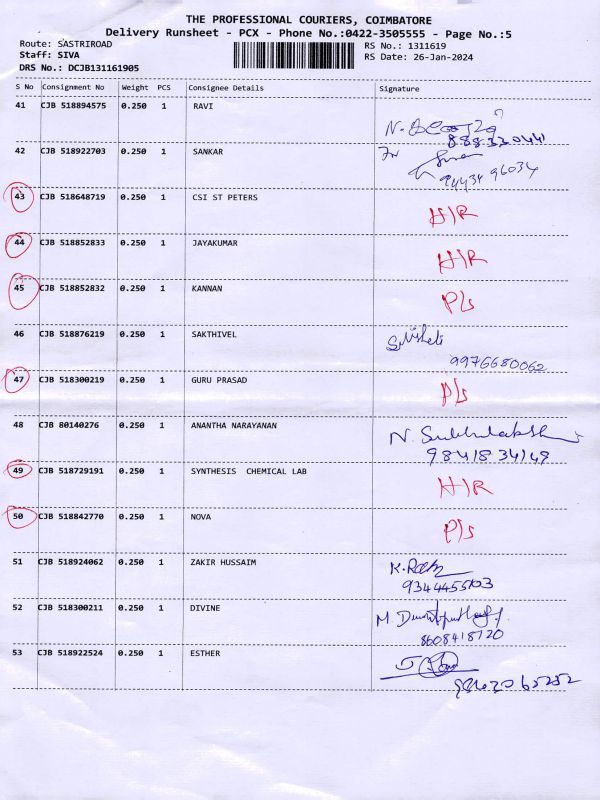 THE PROFESSIONAL COURIERS, COIMBATORE
Delivery Runsheet - PCX - Phone No.:0422-3505555 - Page No.:5
Route: SASTRIROAD
Staff: SIVA
DRS No.: DCJB131161905
RS No.: 1311619
RS Date: 26-Jan-2024
S No Consignment No Weight PCS Consignee Details Signature
41 CJB 518894575 0.250 1 RAVI
42 CJB 518922703 0.250 1 SANKAR
94434 96034
43 CJB 518648719 0.250 1 CSI ST PETERS H/R
44 CJB 518852833 0.250 1 JAYAKUMAR H/R
45 CJB 518852832 0.250 1 KANNAN P/s
46 CJB 518876219 0.250 1 SAKTHIVEL
9976680062
47 CJB 518300219 0.250 1 GURU PRASAD P/s
48 CJB 80140276 0.250 1 ANANTHA NARAYANAN
9841834149
49 CJB 518729191 0.250 1 SYNTHESIS CHEMICAL LAB H/R
50 CJB 518842770 0.250 1 NOVA P/s
51 CJB 518924062 0.250 1 ZAKIR HUSSAIM
52 CJB 518300211 0.250 1 DIVINE
8608418720
53 CJB 518922524 0.250 1 ESTHER